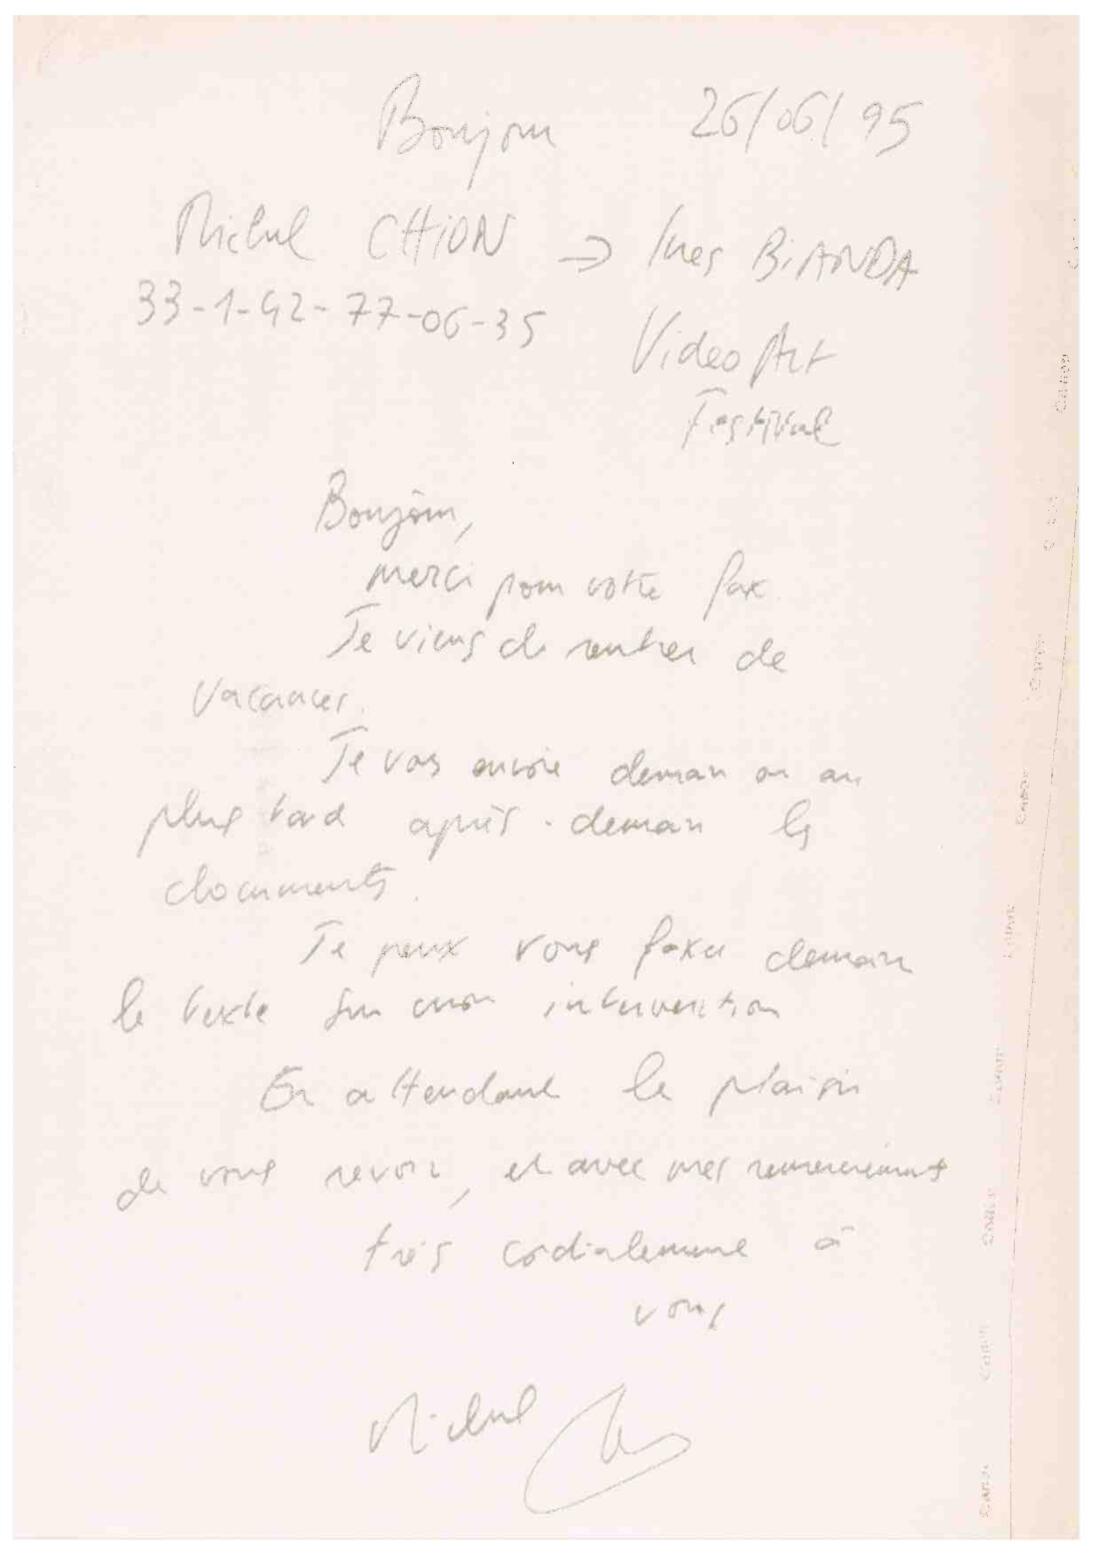 Bonjour 26/06/95
Michel CHION → Ines BIANDA
33-1-42-77-06-35
Video Art
Festival
Bonjour,
merci pour votre fax
Je viens de rentrer de
vacances.
Je vous envoie demain ou au
plus tard après-demain les
documents.
Je peux vous faxer demain
le texte sur mon intervention
En attendant le plaisir
de vous revoir, et avec mes remerciements
très cordialement à
vous
Michel
Canon
Canon
Canon
Canon
Canon
Canon
Canon